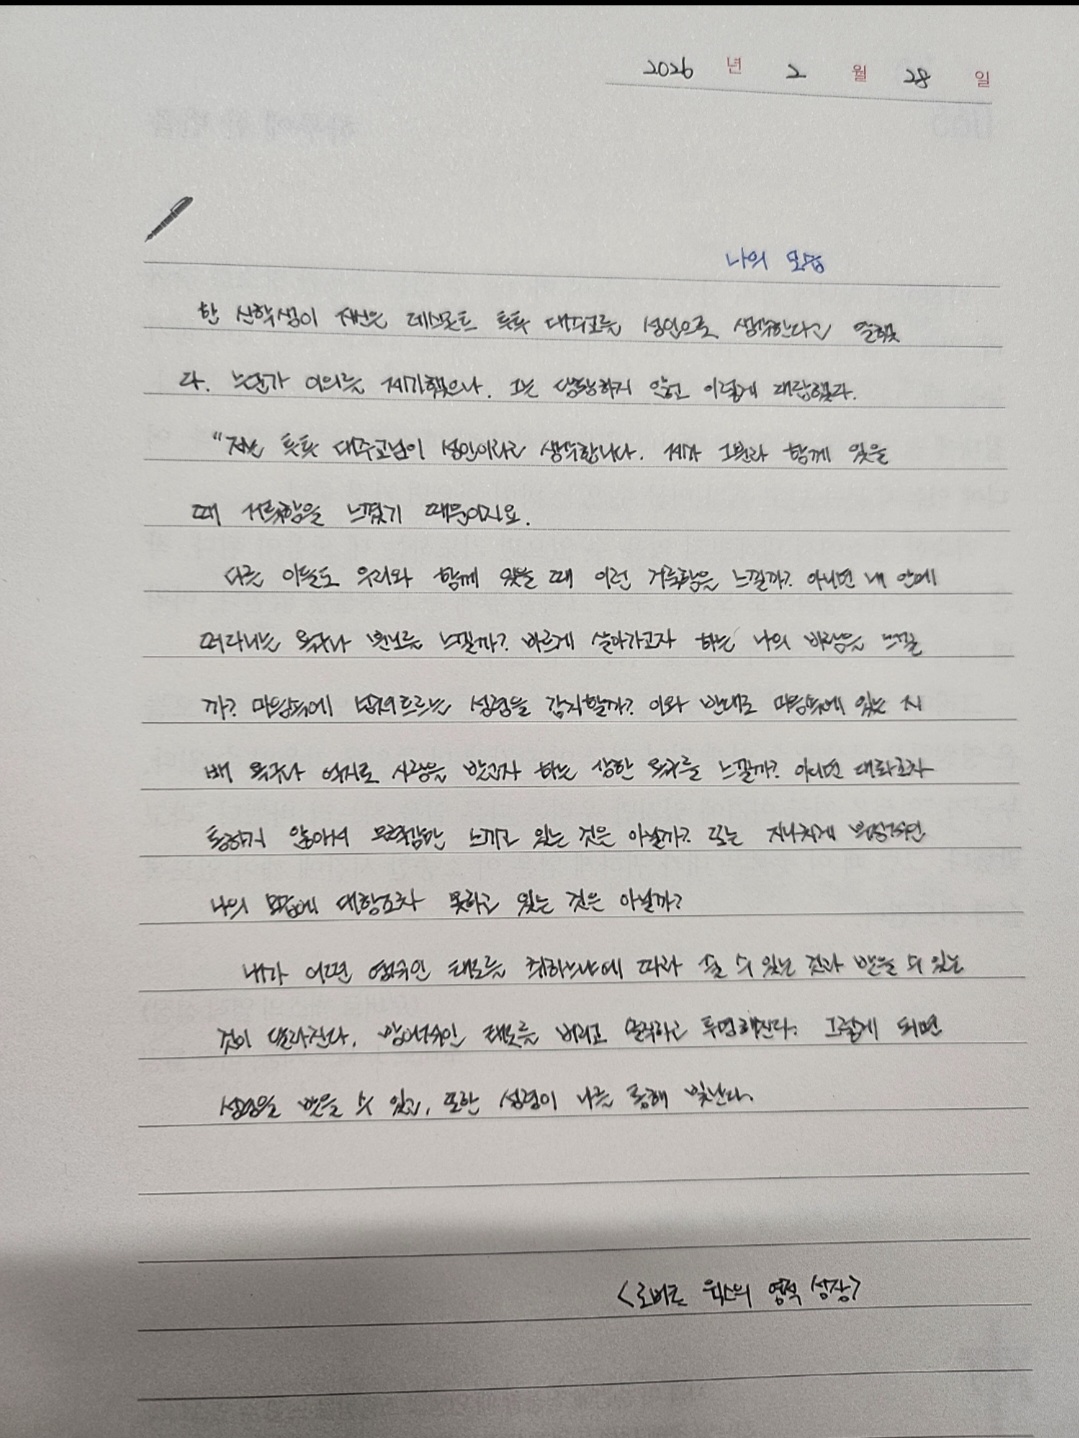 2026 년 2 월 28 일
나의 모습
한 신학생이 자신은 데스몬드 투투 대주교를 성인으로 생각한다고 말했
다. 누군가 이의를 제기했으나, 그는 당황하지 않고 이렇게 대답했다.
"저는 투투 대주교님이 성인이라고 생각합니다. 제가 그분과 함께 있을
때 거룩함을 느꼈기 때문이지요.
다른 이들도 우리와 함께 있을 때 이런 거룩함을 느낄까? 아니면 내 안에
떠다니는 욕구나 분노를 느낄까? 바르게 살아가고자 하는 나의 바람을 느낄
까? 마음속에 넘쳐흐르는 성령을 감지할까? 이와 반대로 마음속에 있는 지
배 욕구나 억지로 사랑을 받고자 하는 상한 욕구를 느낄까? 아니면 대화조차
통하지 않아서 무력감만 느끼고 있는 것은 아닐까? 또는 지나치게 부정적인
나의 모습에 대항조차 못하고 있는 것은 아닐까?
내가 어떤 영적인 태도를 취하느냐에 따라 줄 수 있는 것과 받을 수 있는
것이 달라진다. 방어적인 태도를 버리고 솔직하고 투명해진다. 그렇게 되면
성령을 받을 수 있고, 또한 성령이 나를 통해 빛난다.
<로버트 윅스의 영적 성장>